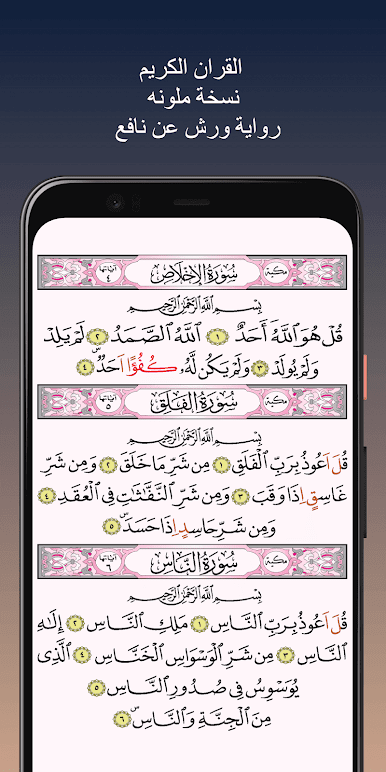 القران الكريم
نسخة ملونه
رواية ورش عن نافع
مكية سُورَةُ الإِخْلَاصِ آيَاتُهَا ٤
بِسْمِ اللَّهِ الرَّحْمَٰنِ الرَّحِيمِ
قُلْ هُوَ ٱللَّهُ أَحَدٌ ١ ٱللَّهُ ٱلصَّمَدُ ٢ لَمْ يَلِدْ
وَلَمْ يُولَدْ ٣ وَلَمْ يَكُن لَّهُۥ كُفُؤًا اَحَدٌ ٤
مكية سُورَةُ الفَلَقِ آيَاتُهَا ٥
بِسْمِ اللَّهِ الرَّحْمَٰنِ الرَّحِيمِ
قُلَ اَعُوذُ بِرَبِّ ٱلْفَلَقِ ١ مِن شَرِّ مَا خَلَقَ ٢ وَمِن شَرِّ
غَاسِقٍ اِذَا وَقَبَ ٣ وَمِن شَرِّ ٱلنَّفَّٰثَٰتِ فِى ٱلْعُقَدِ ٤
وَمِن شَرِّ حَاسِدٍ اِذَا حَسَدَ ٥
مكية سُورَةُ النَّاسِ آيَاتُهَا ٦
بِسْمِ اللَّهِ الرَّحْمَٰنِ الرَّحِيمِ
قُلَ اَعُوذُ بِرَبِّ ٱلنَّاسِ ١ مَلِكِ ٱلنَّاسِ ٢ إِلَٰهِ
ٱلنَّاسِ ٣ مِن شَرِّ ٱلْوَسْوَاسِ ٱلْخَنَّاسِ ٤ ٱلَّذِى
يُوَسْوِسُ فِى صُدُورِ ٱلنَّاسِ ٥
مِنَ ٱلْجِنَّةِ وَٱلنَّاسِ ٦